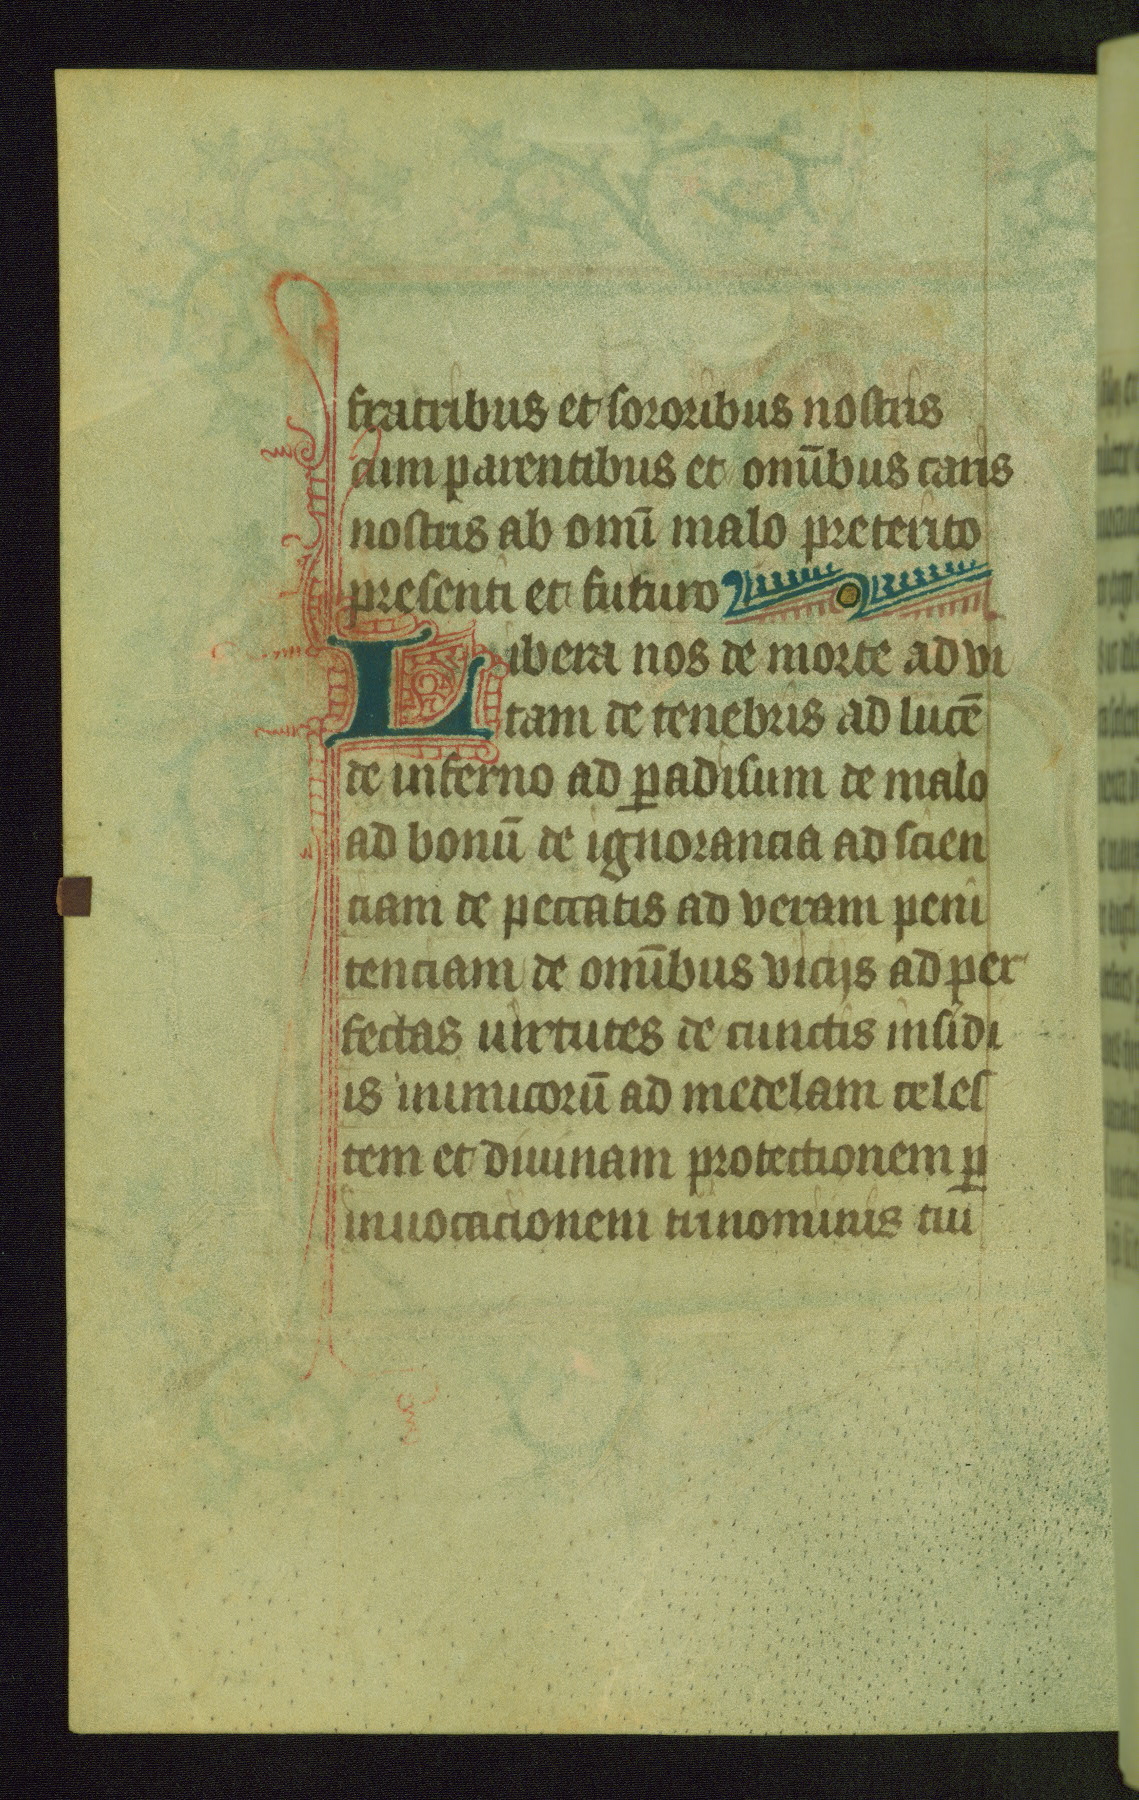 fratribus et sororibus nostris
cum parentibus et om̄ibus caris
nostris ab om̄i malo preterito
presenti et futuro
Libera nos de morte ad vi
tam de tenebris ad lucē
de inferno ad ꝑadisum de malo
ad bonū de ignorancia ad scien
ciam de peccatis ad veram peni
tenciam de om̄ibus vicijs ad per
fectas uirtutes de cunctis insidi
is inimicorū ad medelam celes
tem et diuinam protectionem ꝑ
inuocacionem tui nominis tui